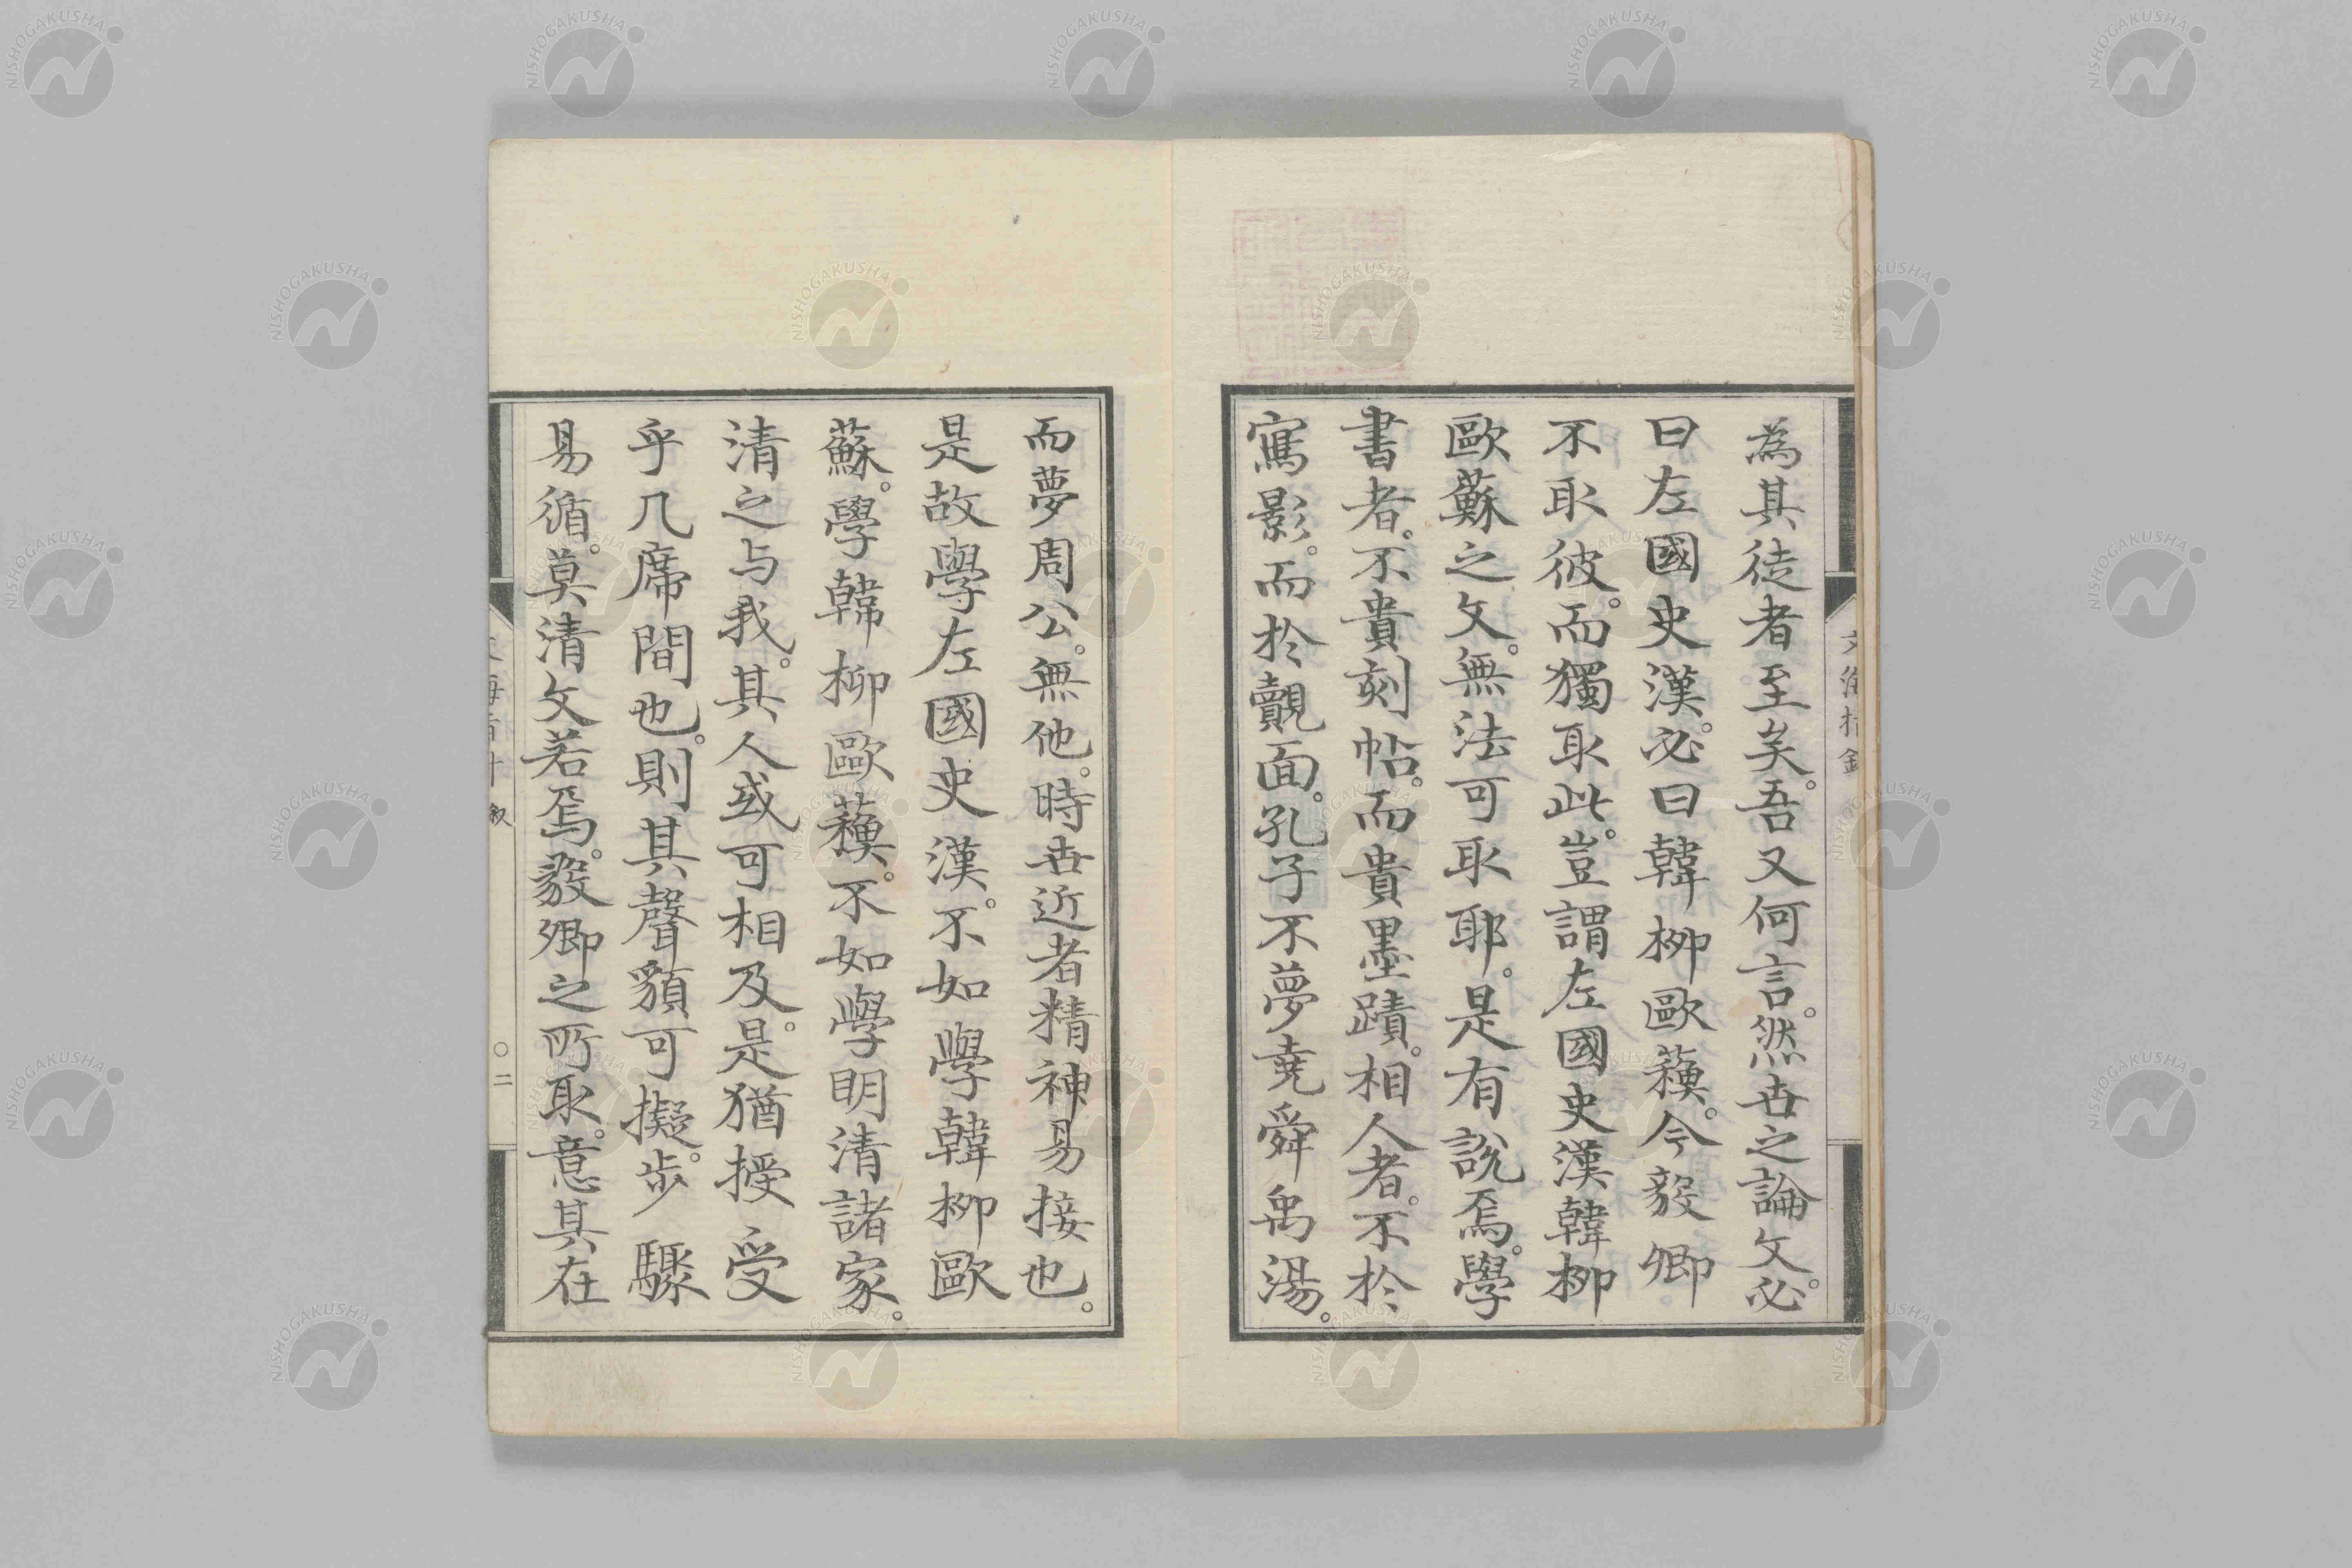 為其徒者至矣。吾又何言。然世之論文。必
曰左國史漢。必曰韓柳歐蘓。今毅卿
不取彼。而獨取此。豈謂左國史漢韓柳
歐蘇之文。無法可取耶。是有說焉。學
書者。不貴刻帖。而貴墨蹟。相人者。不於
寫影。而於覿面。孔子不夢堯舜禹湯。
而夢周公。無他。時世近者精神易接也。
是故學左國史漢。不如學韓柳歐
蘇。學韓柳歐蘓。不如學明清諸家。
清之与我。其人或可相及。是猶授受
乎几席間也。則其聲貌可擬。步驟
易循。莫清文若焉。毅卿之所取。意其在
叙
〇二
NISHOGAKUSHA